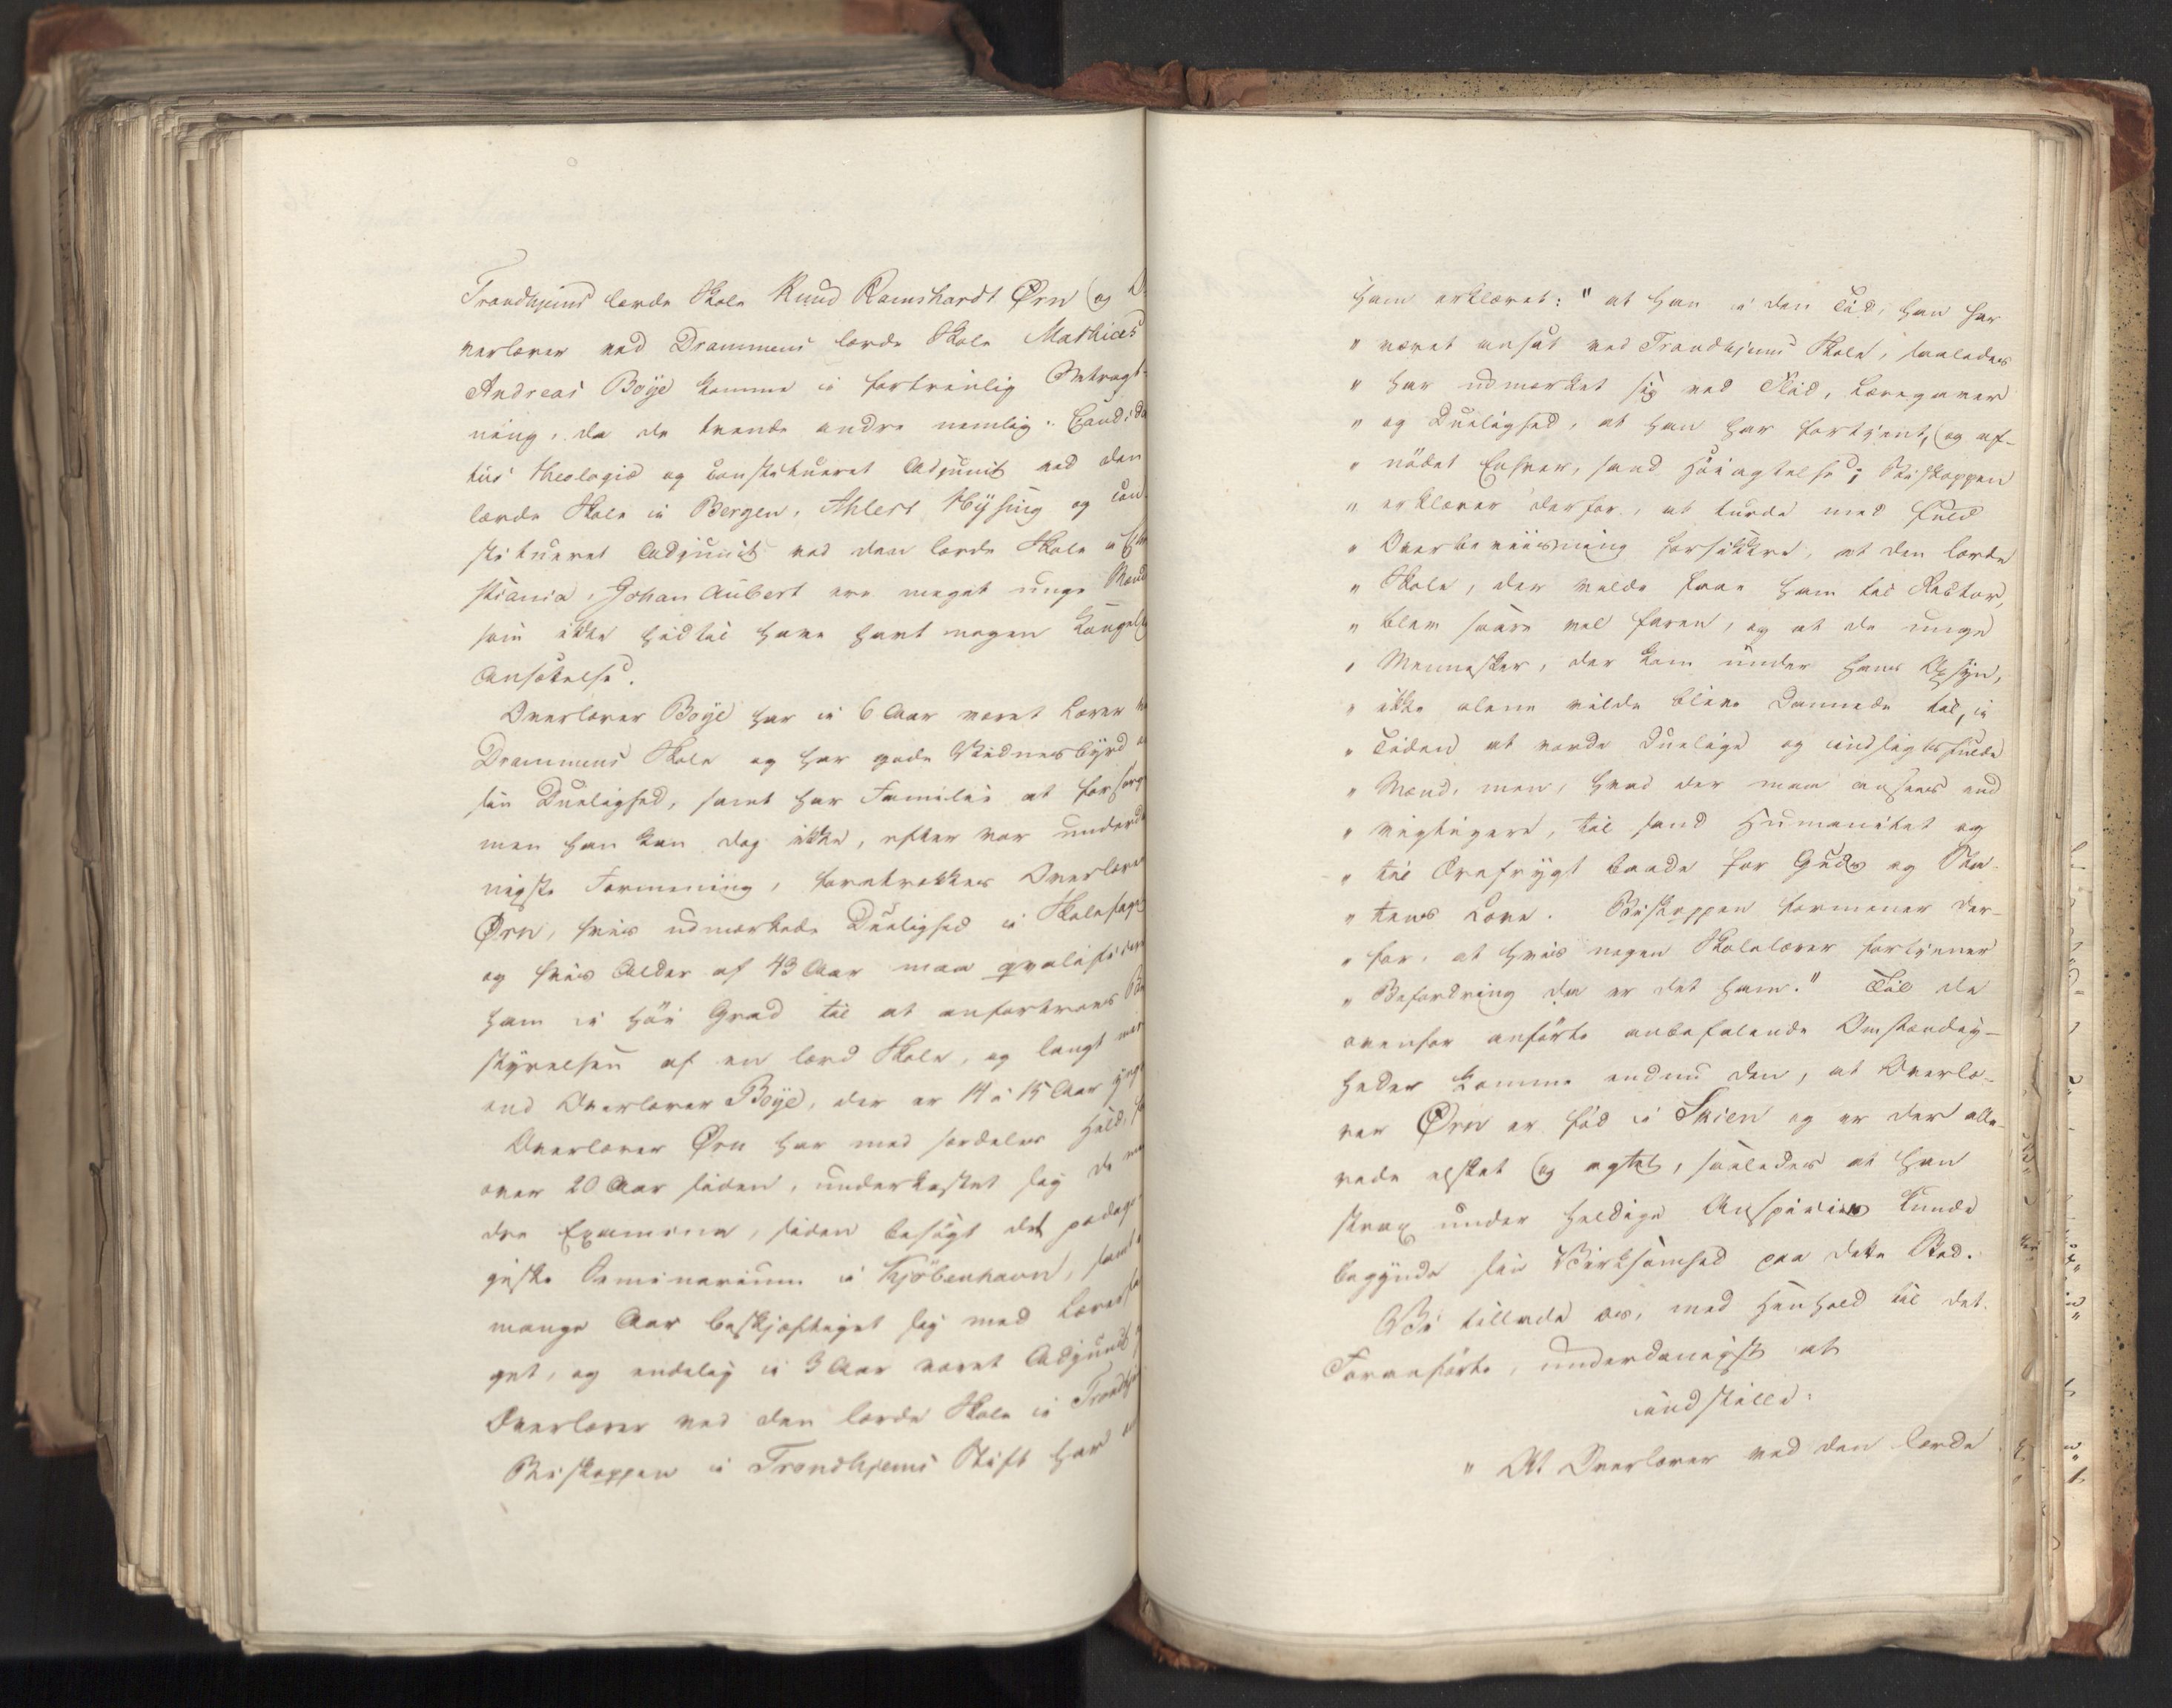 Trondhjems lærde Skole Knud Ramshardt Ørn og O-
verlærer ved Drammens lærde Skole Mathias
Andreas Böye komme i fortrinlig Betragt-
ning, da de tvende andre nemlig: Candida
tus theologiæ og constitueret Adjunct ved den
lærde Skole i Bergen, Ahlert Hysing og con-
stitueret Adjunct ved den lærde Skole i Chri
stiania, Johan Aubert ere meget unge Mænd
som ikke hidtil have havt nogen Kongelig
Ansættelse.
Overlærer Böye har i 6 Aar været Lærer ved
Drammens Skole og har gode Vidnesbyrd om
sin Duelighed, samt har Familie at forsørge
men han kan dog ikke, efter vor underda
nigste Formening, foretrækkes Overlærer
Ørn, hvis udmærkede Duelighed i Skolefaget
og hvis Alder af 43 Aar maa qvalificere
ham i høi Grad til at anfortroes Be
styrelsen af en lærd Skole, og langt mere
end Overlærer Böye, der er 14 à 15 Aar yngre
Overlærer Ørn har med særdeles Held, for
over 20 Aar siden, underkastet sig de
dre Examina, siden besøgt det pædago
giske Seminarium i Kjöbenhavn, samt i
mange Aar beskjæftiget sig med Lærerfa
get, og endelig i 3 Aar været Adjunct og
Overlærer ved den lærde Skole i Trondhjem
Biskoppen i Trondhjems Stift har om
ham erklæret: "at han i den Tid, han har
" været ansat ved Trondhjems Skole, saaledes
" har udmærket sig ved Flid, Læregaver
" og Duelighed, at han har fortjent, og af-
" nödet Enhver, sand Höiagtelse; Biskoppen
" erklærer derfor, at turde med fuld
" Overbeviisning forsikkre, at den lærde
" Skole, der vilde faae ham til Rector,
" blev saare vel faren, og at de unge
" Mennesker, der kom under hans Opsyn,
" ikke alene vilde blive dannede til, i
" Tiden at vorde duelige og indsigtsfulde
" Mænd, men, hvad der maa ansees end
" vigtigere, til sand Humanitet og
" til Ærefrygt baade for Guds og Sta-
" tens Love. Biskoppen formener der-
" for, at hvis nogen Skolelærer fortjener
" Befordring da er det ham." Til de
ovenfor anførte anbefalende Omstændig-
heder komme endnu den, at Overlæ-
rer Ørn er fød i Skien og er der alle-
rede elsket og agtet, saaledes at han
strax under heldige Auspicier kunde
begynde sin Virksomhed paa dette Sted.
Vi tillade os, med Henhold til det
Foranførte, underdanigst at
indstille:
" At Overlærer ved den lærde